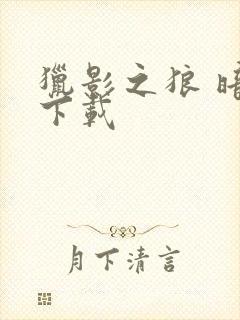 獵影之狼 暗
下載
月下清言